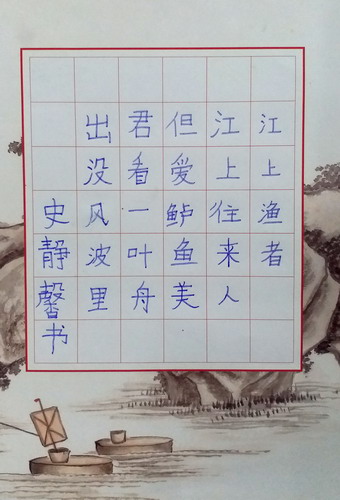 江上渔者
江上往来人
但爱鲈鱼美
君看一叶舟
出没风波里
史静馨书